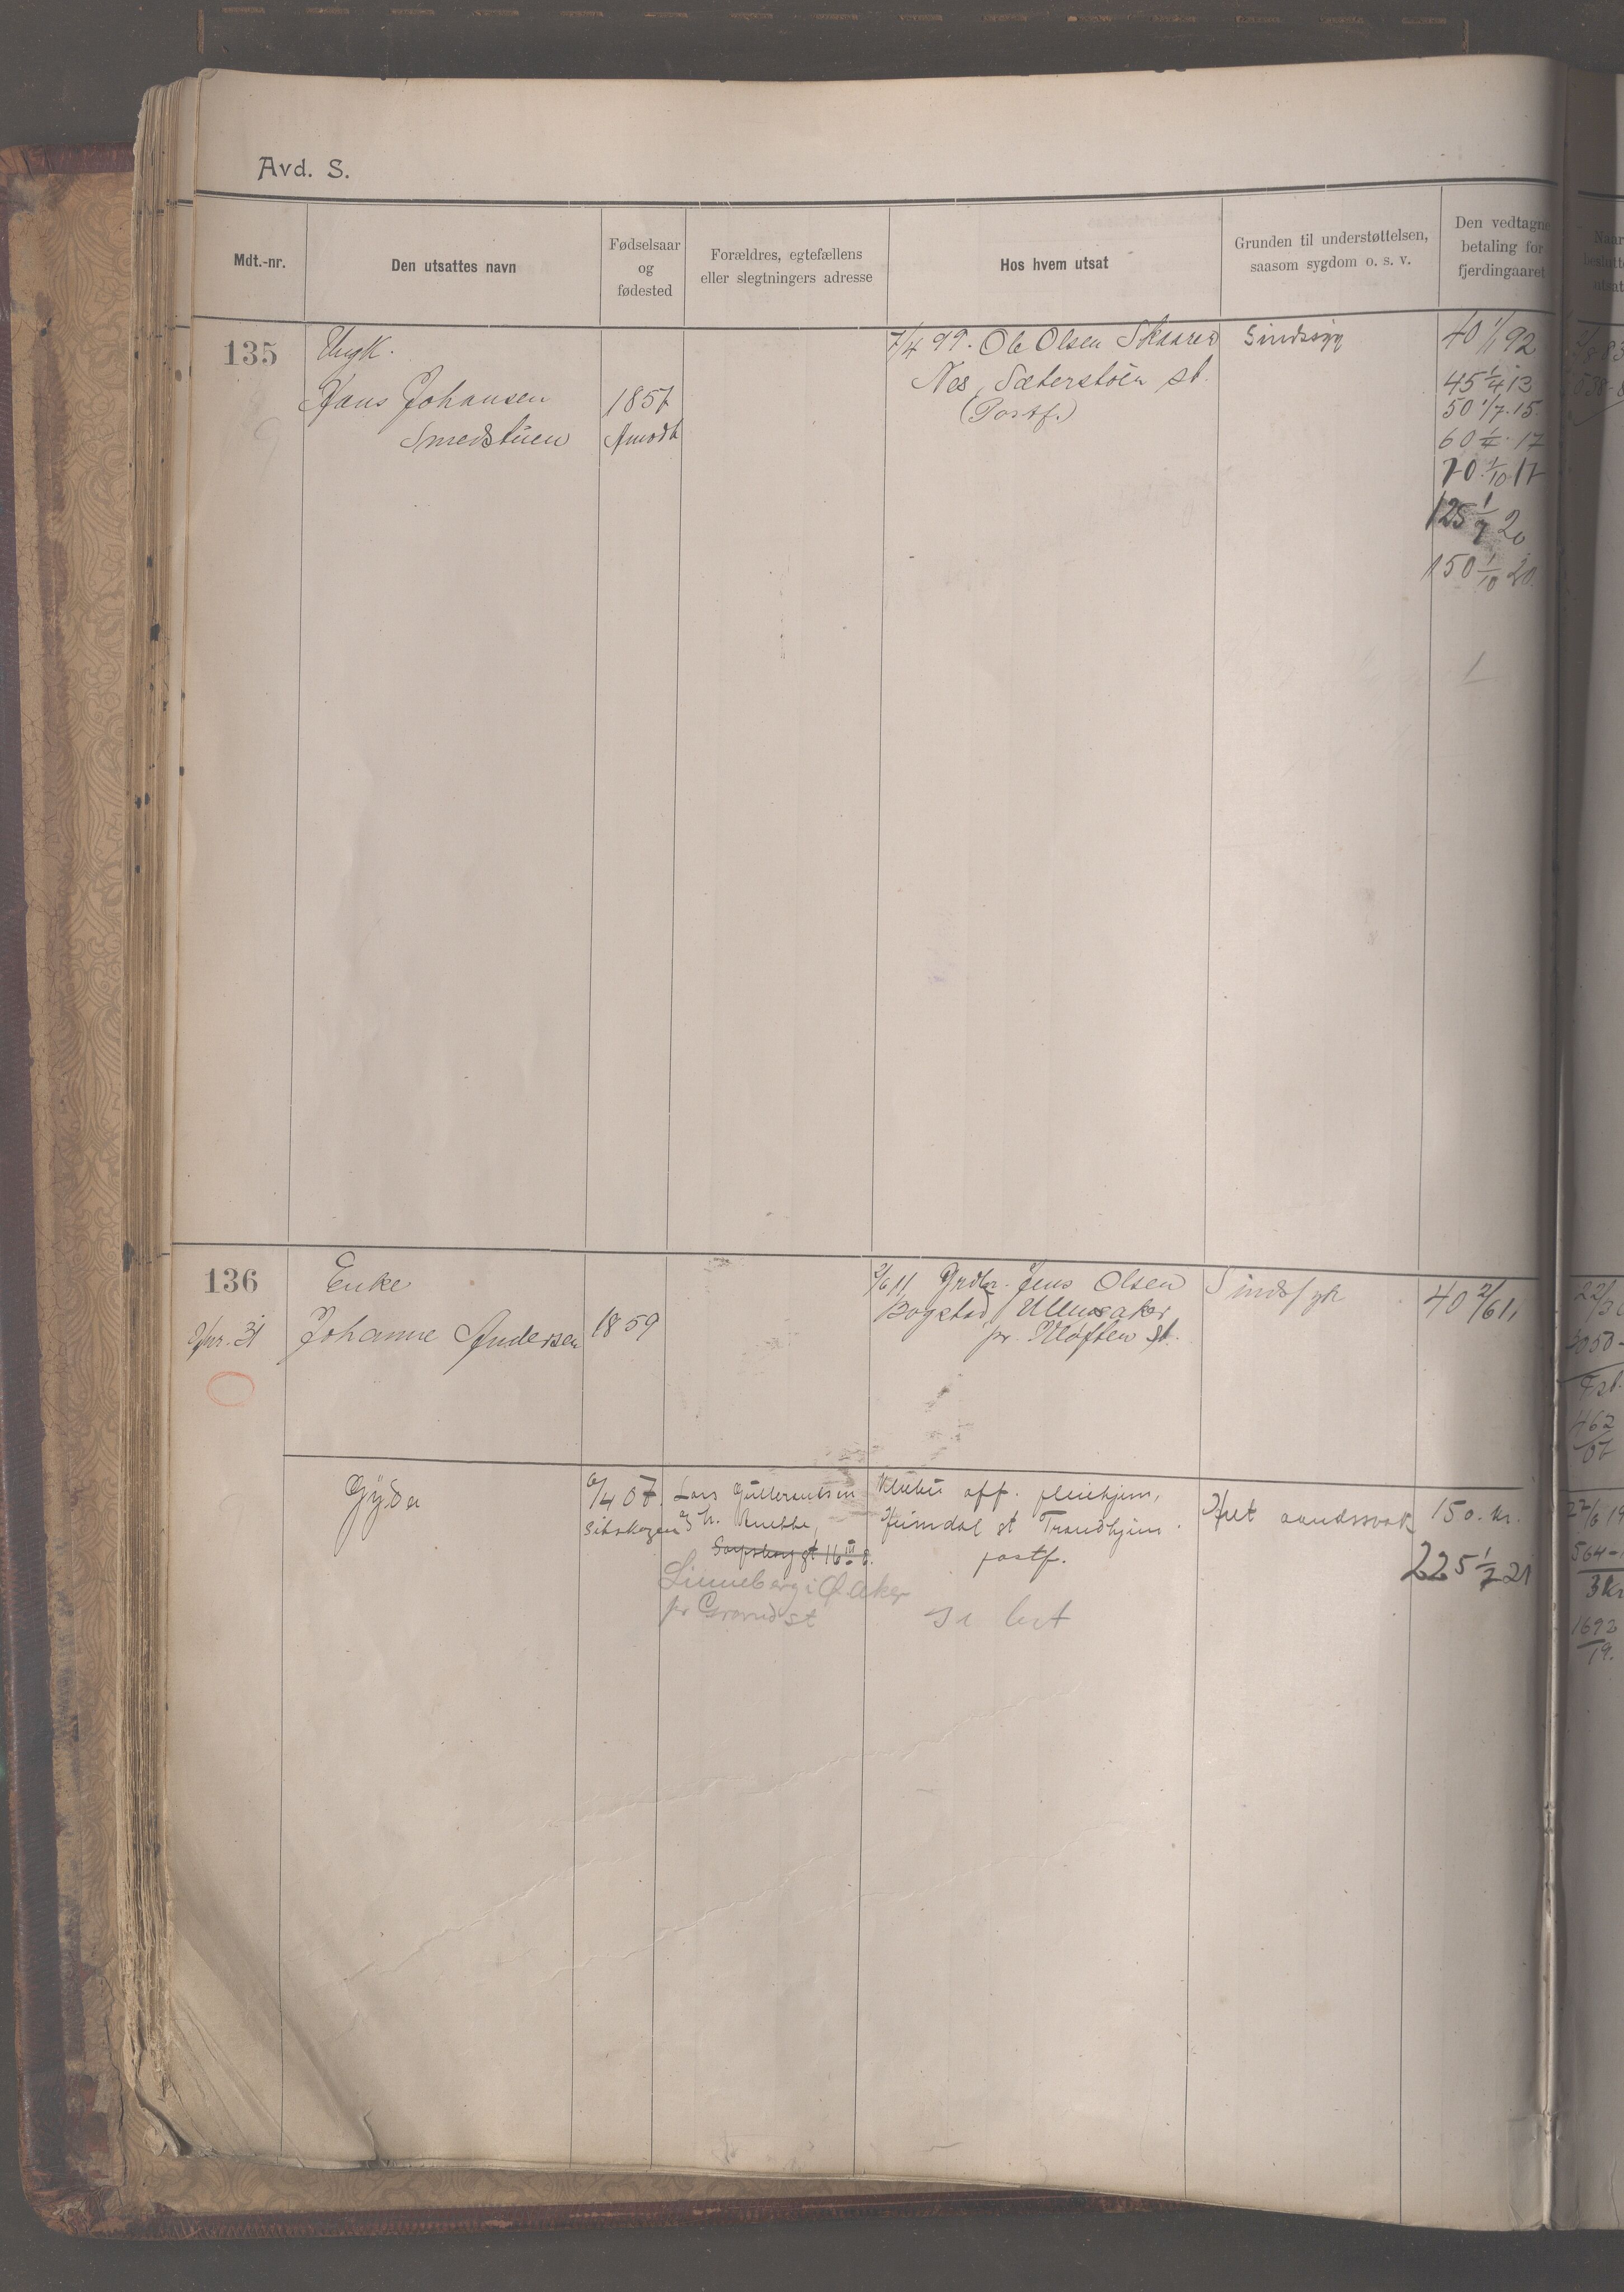 Avd. S.
Mdt.-nr.
Den utsattes navn
Fødselsaar
og
fødested
Forældres, egtefællens
eller slegtningers adresse
Hos hvem utsat
Grunden til understøttelsen,
saasom sygdom o. s. v.
Den vedtagne
betaling for
fjerdingaaret
135
Ungk.
Hans Johansen
Smedstuen
1857
Amodt
7/4 99. Ole Olsen Skaarer
Nes, Sæterstöen st.
(Postf.)
Sindssyg
40 1/1 92
45 1/4 13
50 1/7. 15.
60 1/4. 17
70 1/10 17
125 1/7 20
150 1/10 20.
136
Enke
Johanne Andersen
1859
2/6 11 Grdbr. Jens Olsen
Bogstad, Ullensaker
pr. Kløften st.
Sindssyk
40 2/6 11
Gyda
6/4 07.
Lars Gulbrandsen
Anette,
Sarpsborg gt 16 III o.
Linneberg i Ø. Aker
pr Grorud st
Klæbu off. pleiehjem,
Heimdal st Trondhjem.
postf.
Helt aandssvak
150. kr.
225 1/7 21